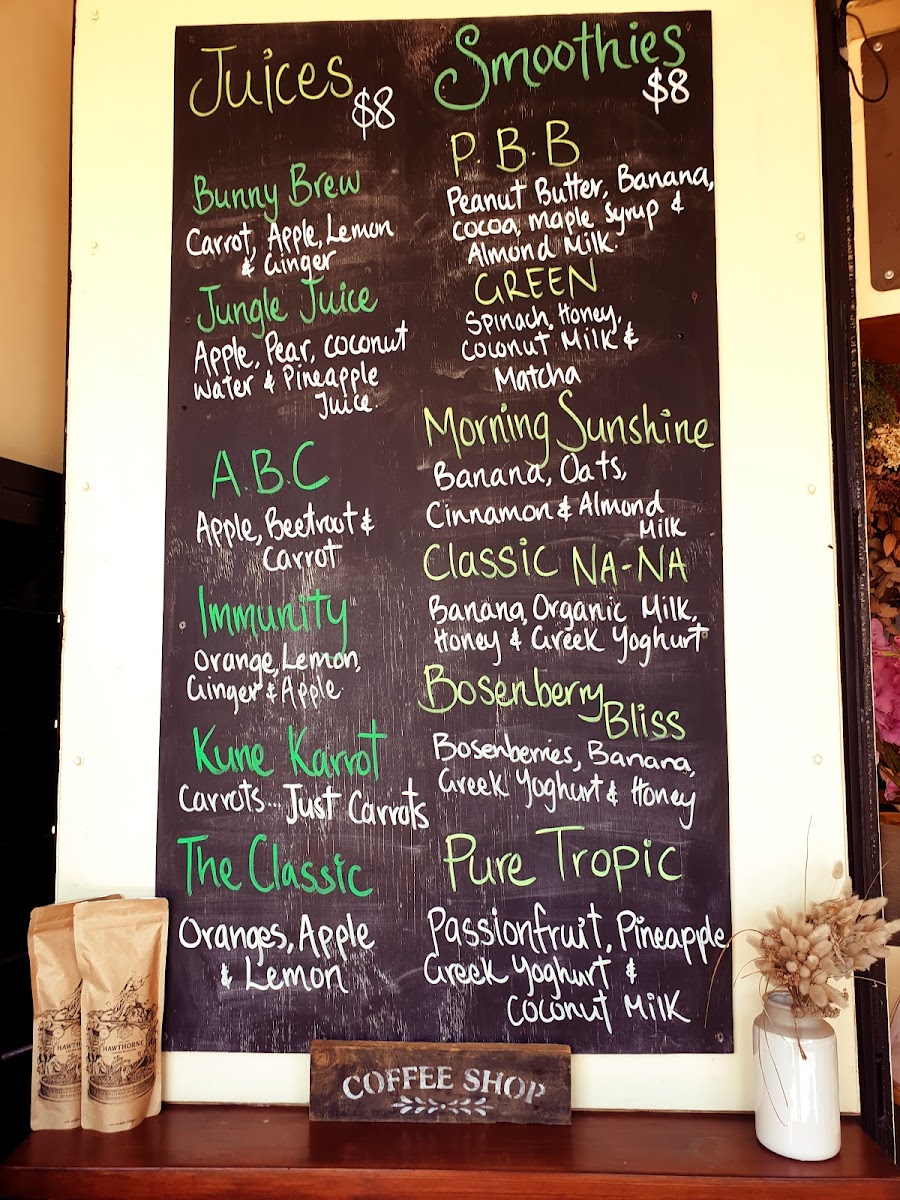 Juices
$8
Bunny Brew
Carrot, Apple, Lemon
& Ginger
Jungle Juice
Apple, Pear, coconut
water & Pineapple
Juice.
A.B.C
Apple, Beetroot &
Carrot
Immunity
Orange, Lemon,
Ginger & Apple
Kune Karrot
Carrots... Just Carrots
The Classic
Oranges, Apple
& Lemon
Smoothies
$8
P.B.B
Peanut Butter, Banana,
cocoa, maple syrup &
Almond Milk.
GREEN
Spinach, Honey,
Coconut Milk &
Matcha
Morning Sunshine
Banana, Oats,
Cinnamon & Almond
Milk
Classic NA-NA
Banana, Organic Milk,
Honey & Greek Yoghurt
Bosenberry
Bliss
Bosenberries, Banana,
Greek Yoghurt & Honey
Pure Tropic
Passionfruit, Pineapple
Greek Yoghurt &
Coconut Milk
HAWTHORNE
COFFEE SHOP